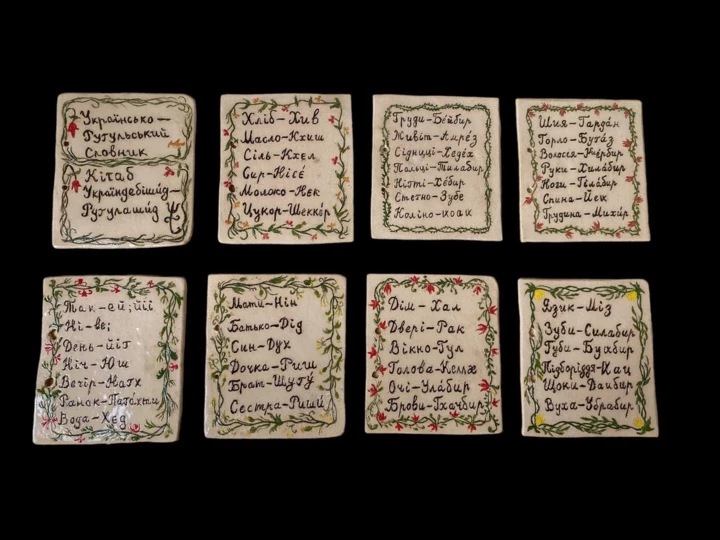 Українсько-
Рутульський
Словник
Кітаб
Українdебішид-
Рутулашид
Хліб-Хив
Масло-Кхиш
Сіль-Кхел
Сир-Нісе́
Молоко-Нек
Цукор-Шекке́р
Груди-Бе́йбир
Живіт-Амре́з
Сідниці-Хеде́х
Пальці-Тилабир
Нігті-Хе́бир
Стегно-Зубе
Коліно-коак
Шия-Гарда́н
Горло-Буга́з
Волосся-Че́рбир
Руки-Хила́бир
Ноги-Гела́бир
Спина-Йех
Грудина-Михи́р
Так-ей;йіі
Ні-ве;
День-йіг
Ніч-Юш
Вечір-Нагх
Ранок-Патахти
Вода-Хед
Мати-Нін
Батько-Дід
Син-Дух
Дочка-Риш
Брат-Шугу́
Сестра-Риши
Дім-Хал
Двері-Рак
Вікно-Гул
Голова-Келле
Очі-Ула́бир
Брови-Гхачбир
Язик-Міз
Зуби-Силабир
Губи-Бухбир
Підборіддя-Кац
Щоки-Ваибир
Вуха-Убрабир